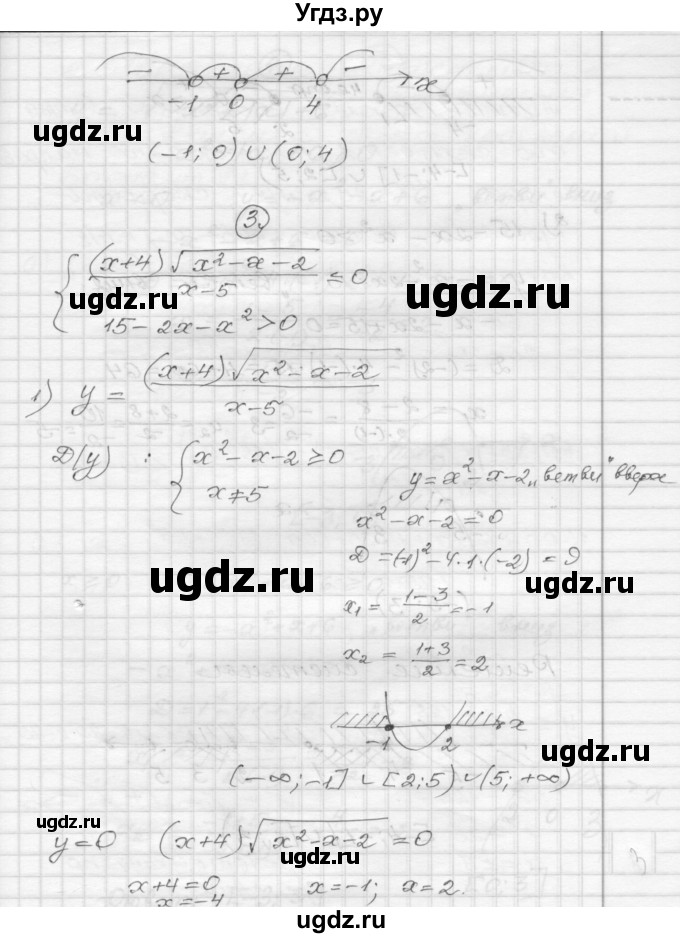 Угдз.ру
− + + − x
−1 0 4
ugdz.ru ugdz.ru
(−1; 0) ∪ (0; 4)
3.
{ (x+4)√(x²−x−2) / (x−5) ≤ 0
ugdz.ru ugdz.ru
15−2x−x² > 0
1) y = (x+4)√(x²−x−2) / (x−5)
D(y) : { x²−x−2 ≥ 0
x ≠ 5
y = x²−x−2 „ветви" вверх
x²−x−2=0
D = (−1)²−4·1·(−2) = 9
ugdz.ru ugdz.ru
x₁ = (1−3)/2 = −1
x₂ = (1+3)/2 = 2
−1 2 x
ugdz.ru
(−∞; −1] ∪ [2; 5) ∪ (5; +∞)
ugdz.ru
y=0 (x+4)√(x²−x−2) = 0
ugdz.ru
x+4=0 x=−1; x=2.
x=−4
ugdz.ru